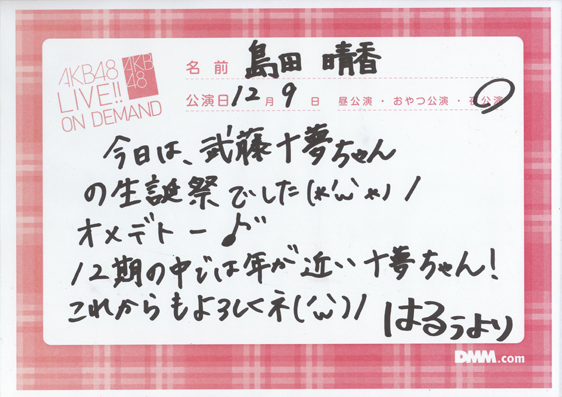 AKB48
LIVE!!
ON DEMAND
AKB
48
名前 島田 晴香
公演日 12月 9日 昼公演・おやつ公演・夜公演
今日は、武藤十夢ちゃん
の生誕祭でした(*'ω'*)/
オメデトー♪
12期の中では年が近い十夢ちゃん!
これからもよろしくネ('ω')/
はるぅより
DMM.com